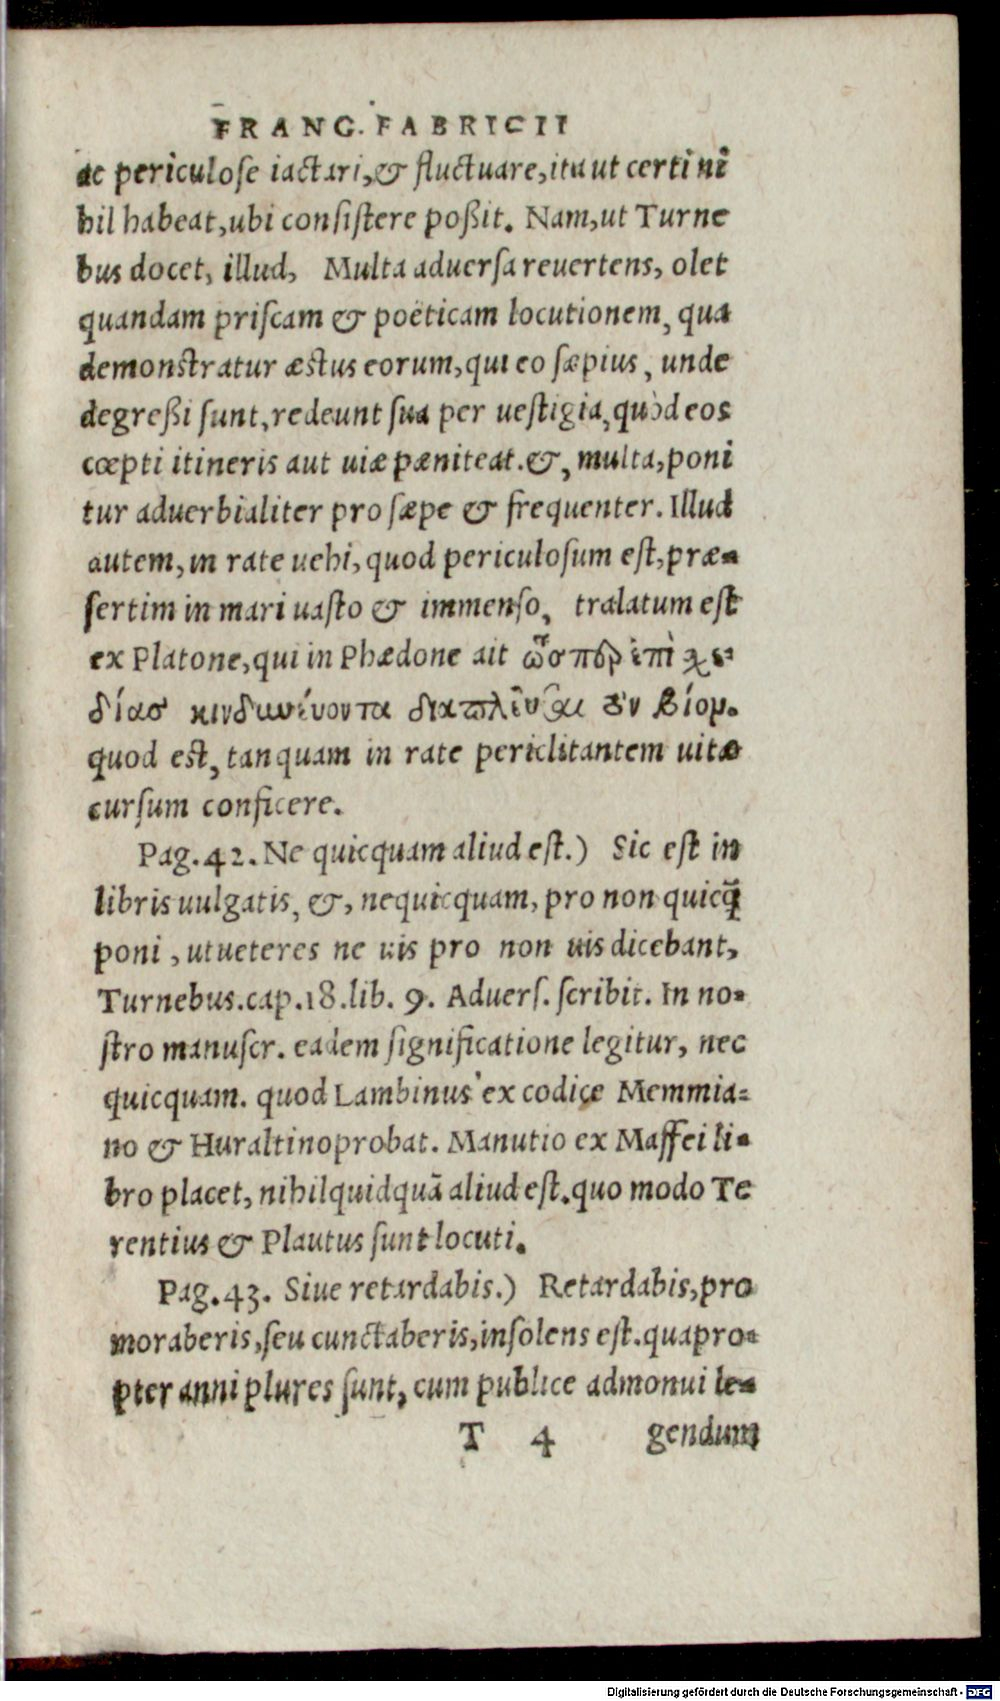 FRANC. FABRICII
ac periculose iactari, & fluctuare, ita ut certi ni
hil habeat, ubi consistere poßit. Nam, ut Turne
bus docet, illud, Multa aduersa reuertens, olet
quandam priscam & poëticam locutionem, qua
demonstratur æstus eorum, qui eo sæpius, unde
degreßi sunt, redeunt sua per uestigia, quòd eos
cœpti itineris aut uiæ pæniteat. &, multa, poni
tur aduerbialiter pro sæpe & frequenter. Illud
autem, in rate uehi, quod periculosum est, præ-
sertim in mari uasto & immenso, tralatum est
ex Platone, qui in Phædone ait ὥσπερ ἐπὶ χε-
δίας κινδυνεύοντα διαπλεῦσαι τὸν βίον.
quod est, tanquam in rate periclitantem uitæ
cursum conficere.
Pag. 42. Ne quicquam aliud est.) Sic est in
libris uulgatis, &, nequicquam, pro non quicq̃
poni, ut ueteres ne uis pro non uis dicebant,
Turnebus. cap. 18. lib. 9. Aduers. scribit. In no-
stro manuscr. eadem significatione legitur, nec
quicquam. quod Lambinus ex codice Memmia-
no & Huraltino probat. Manutio ex Maffei li-
bro placet, nihil quidquā aliud est. quo modo Te
rentius & Plautus sunt locuti.
Pag. 43. Siue retardabis.) Retardabis, pro
moraberis, seu cunctaberis, insolens est. quapro-
pter anni plures sunt, cum publice admonui le-
T 4 gendum
Digitalisierung gefördert durch die Deutsche Forschungsgemeinschaft - DFG